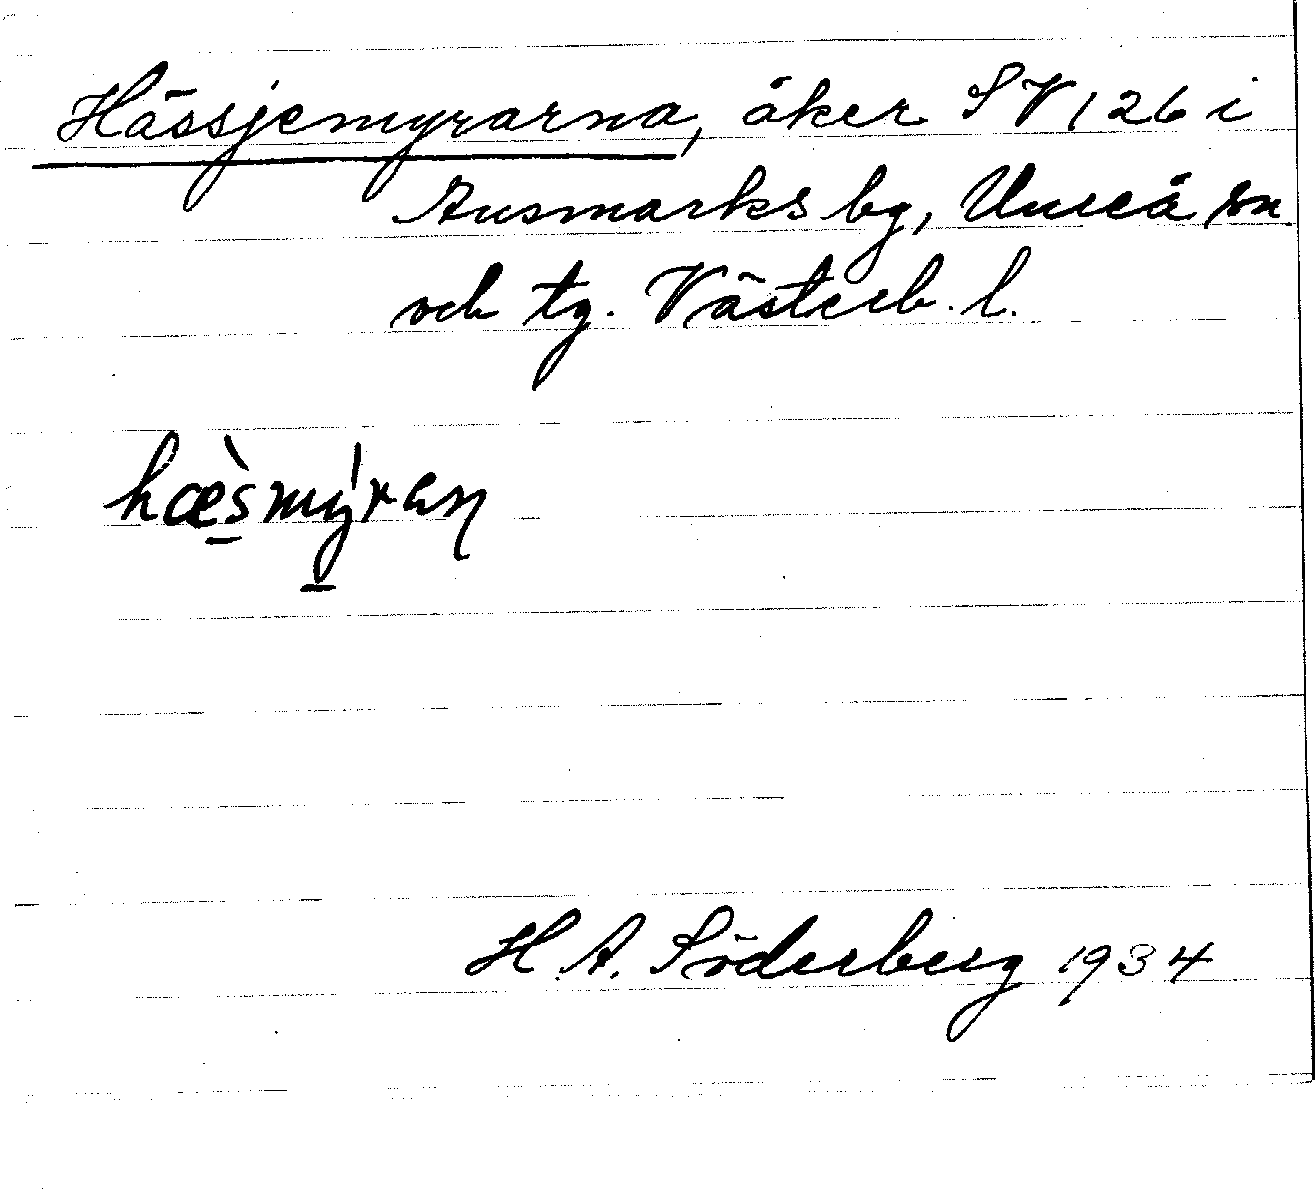 Hässjemyrarna, åker SV 126 i
Ansmarks by, Umeå sn
och tg. Västerb. l.
hæ̀smýran
H.A. Söderberg 1934